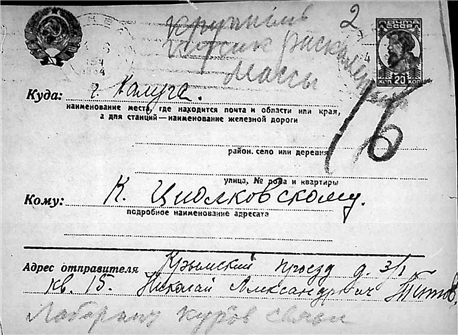 2
крупный
кусок раскаленной
массы
ПОЧТА СССР
КОП 20 КОП
16
Куда: г. Калуга.
наименование места, где находится почта и области или края,
а для станций—наименование железной дороги
район, село или деревня
улица, № дома и квартиры
Кому: К. Циолковскому.
подробное наименование адресата
Адрес отправителя Крымский проезд д. 3/1
кв. 15. Николай Александрович Титов
Лаборант курсов связи